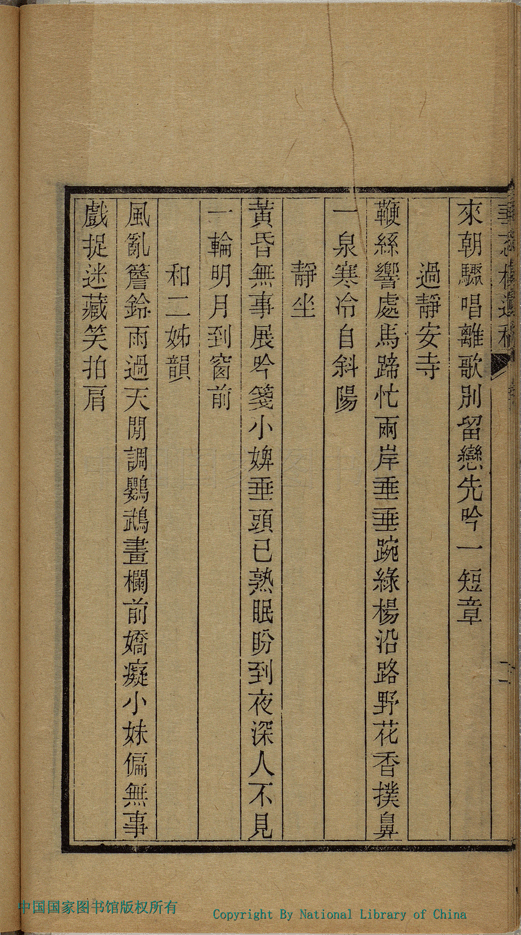 來朝驪唱離歌別留戀先吟一短章
過靜安寺
鞭絲響處馬蹄忙兩岸垂垂踠綠楊沿路野花香撲鼻
一泉寒冷自斜陽
靜坐
黃昏無事展吟箋小婢垂頭已熟眠盼到夜深人不見
一輪明月到窗前
和二姊韻
風亂簷鈴雨過天閒調鸚鵡畫欄前嬌癡小妹偏無事
戲捉迷藏笑拍肩
中国国家图书馆版权所有
Copyright By National Library of China